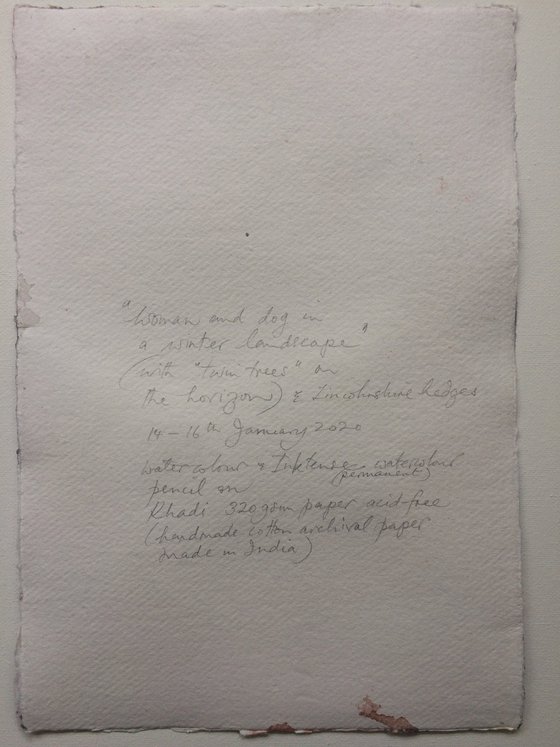 "Woman and dog in
a winter landscape"
(with "twin trees" on
the horizon) & Lincolnshire hedges
14 - 16th January 2020
watercolour & Inktense watercolour
(permanent)
pencil on
Khadi 320gsm paper acid-free
(handmade cotton archival paper
made in India)